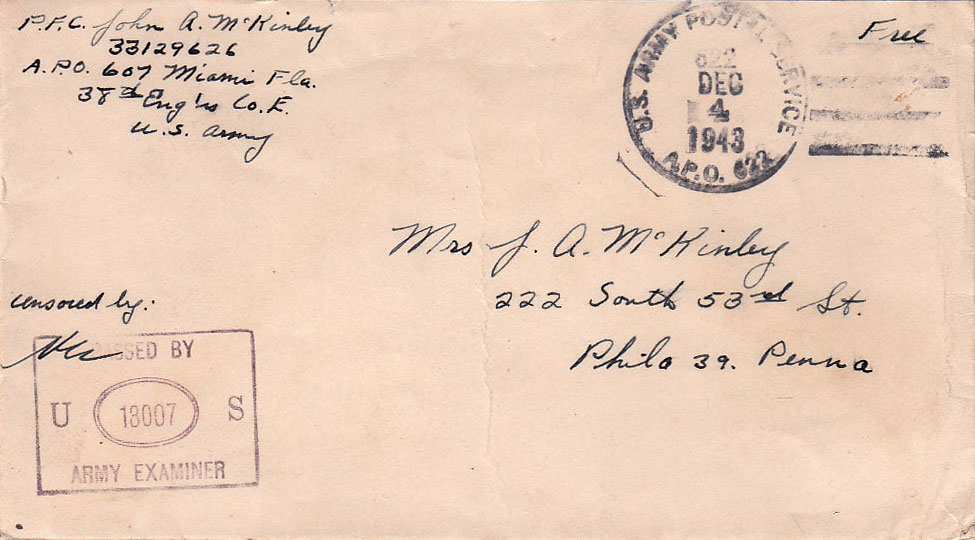 P.F.C. John A. McKinley
33129626
A.P.O. 607 Miami Fla.
38th Eng'rs Co. E.
U.S. Army
U.S. ARMY POSTAL SERVICE
622
DEC
4
1943
A.P.O. 622
Free
Mrs J. A. McKinley
222 South 53rd St.
Phila 39. Penna
censored by:
PASSED BY
U 13007 S
ARMY EXAMINER